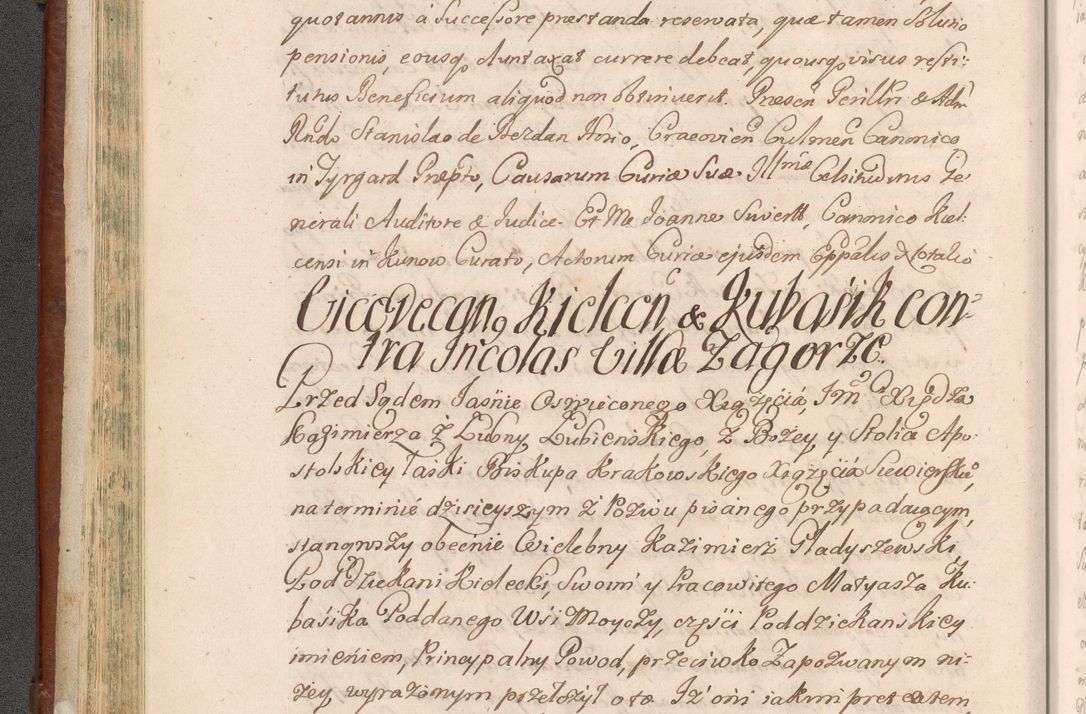 quotannis à Successore præstanda reservata, quæ tamen solutio
pensionis, eousq duntaxat currere debeat, quousq visus resti:
tutus Beneficium aliquod non obtinuerit. Præsen Perillri & Adm
Rndo Stanislao de Bezdan Hosio, Cracovien Culmen Canonico,
in Tyrgard Præpto, Causarum Curiæ Suæ Illmæ Celsitudinis Ge
nerali Auditore & Judice. Et Me Joanne Suvert, Canonico Kiel:
censi in Kunow Curato, Actorum Curiæ ejusdem Eppalis Notario
Vicedecang Kielcen & Kubaśik con-
tra Incolas Villæ Zagorze.
Przed Sądem Jaśnie Oswieconego Xiążęcia, Jmo Xiędza
Kaźimierza z Lubny Łubienskiego, z Bożey y Stolicæ Apo:
stolskiey Łaski Biskupa Krakowskiego Xiążęcia Siewierskio,
na terminie dzisieyszym z Pozwu pisanego przypadaiącym,
stanąwszy obecnie Wielebny Kaźimierz Gładyszewski,
Poddziekani Kielecki, Swoim y Pracowitego Matyasza Ku:
baśika Poddanego Wśi Moyczy, części Poddziekanskiey
imieniem, Principalny Powod, przeciwko Zapozwanym ni:
żey wyrażonym przełożył o to Iż oni iakimi pretextem